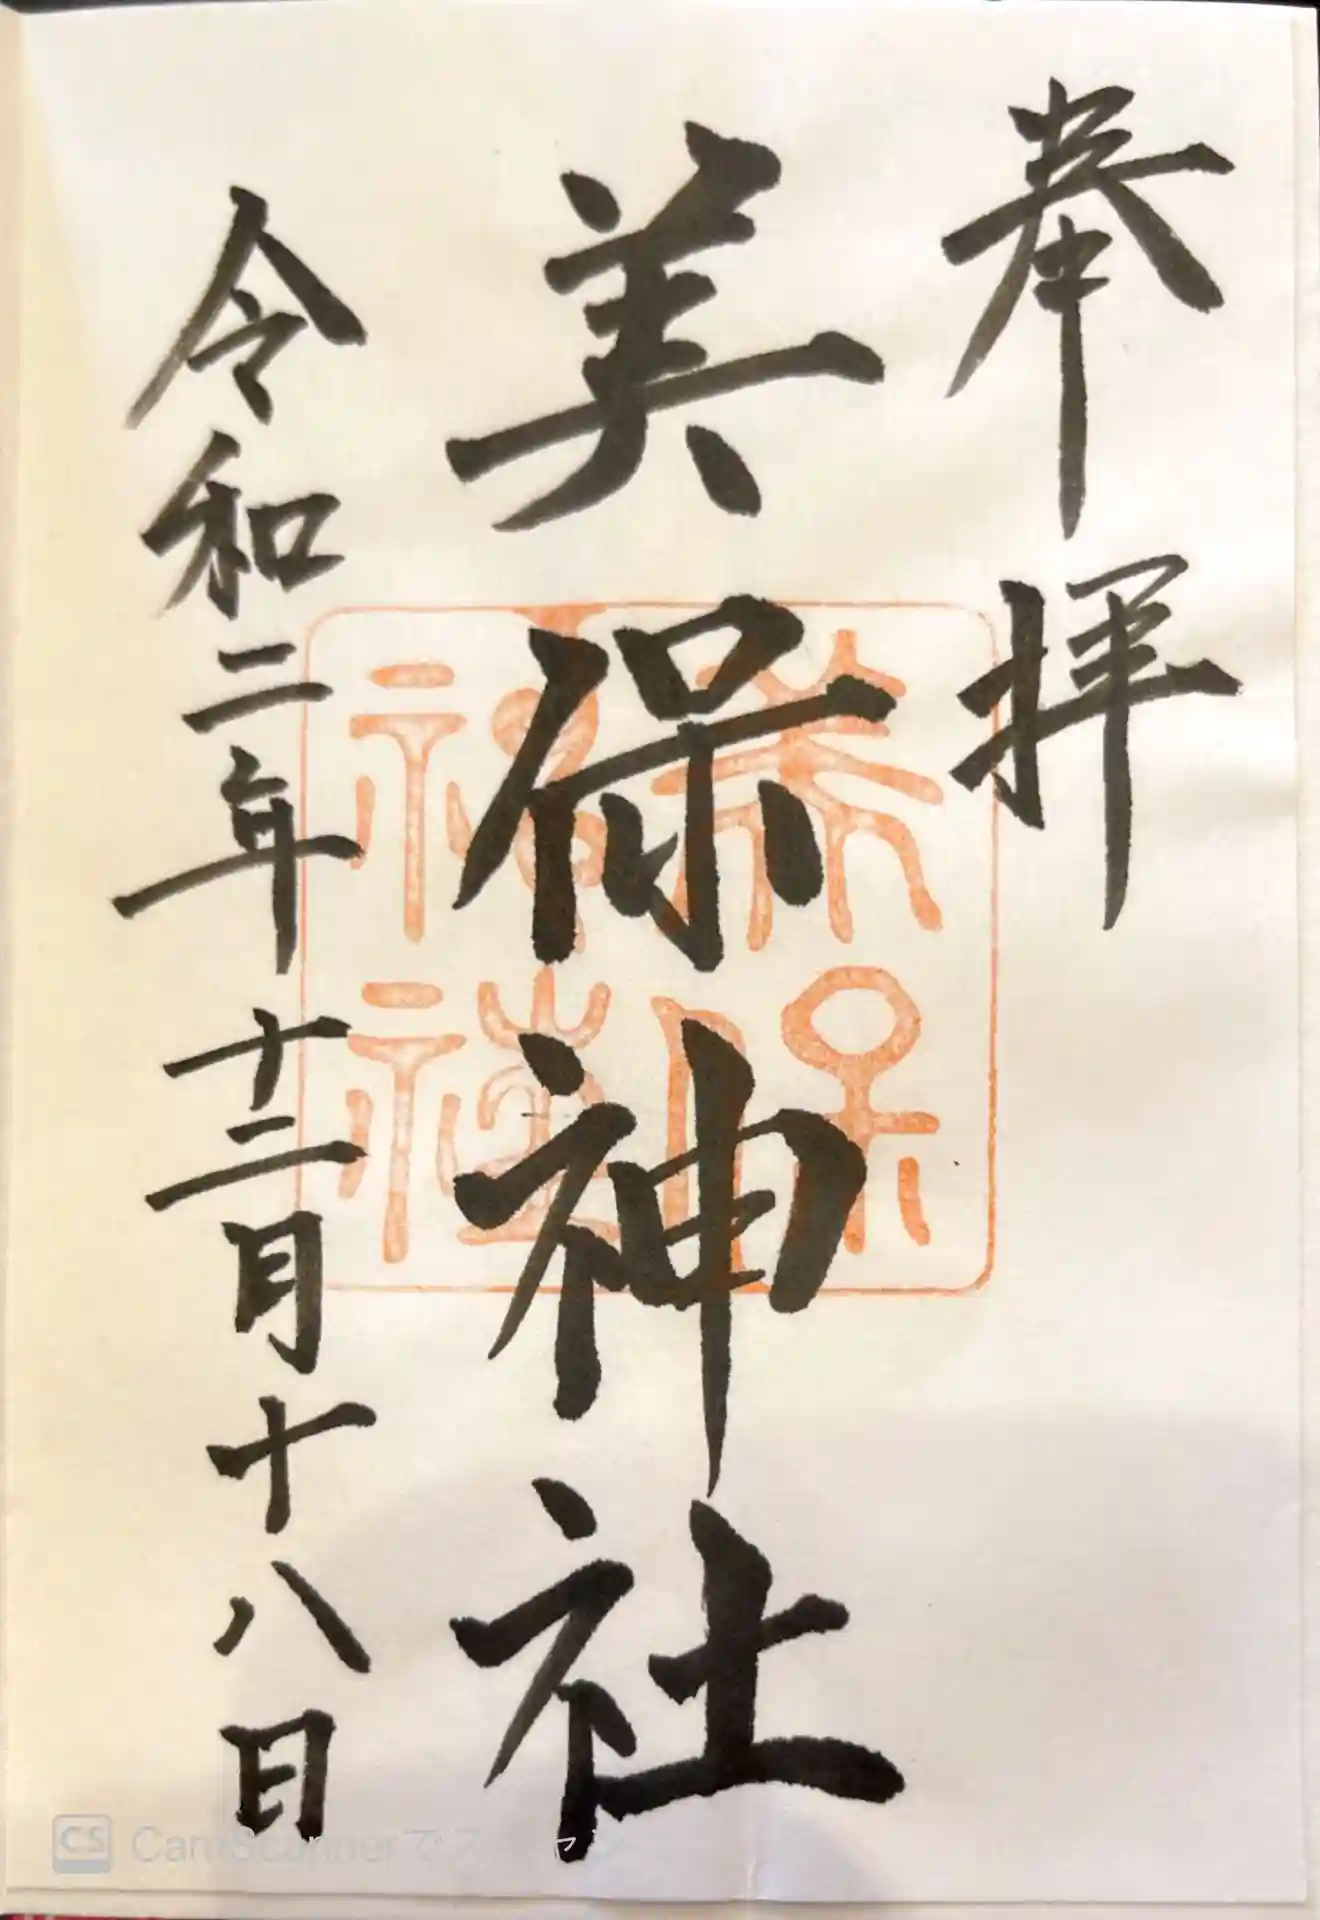 奉拝
美保神社
令和二年十二月十八日
美保神社
CS CamScannerでスキャン